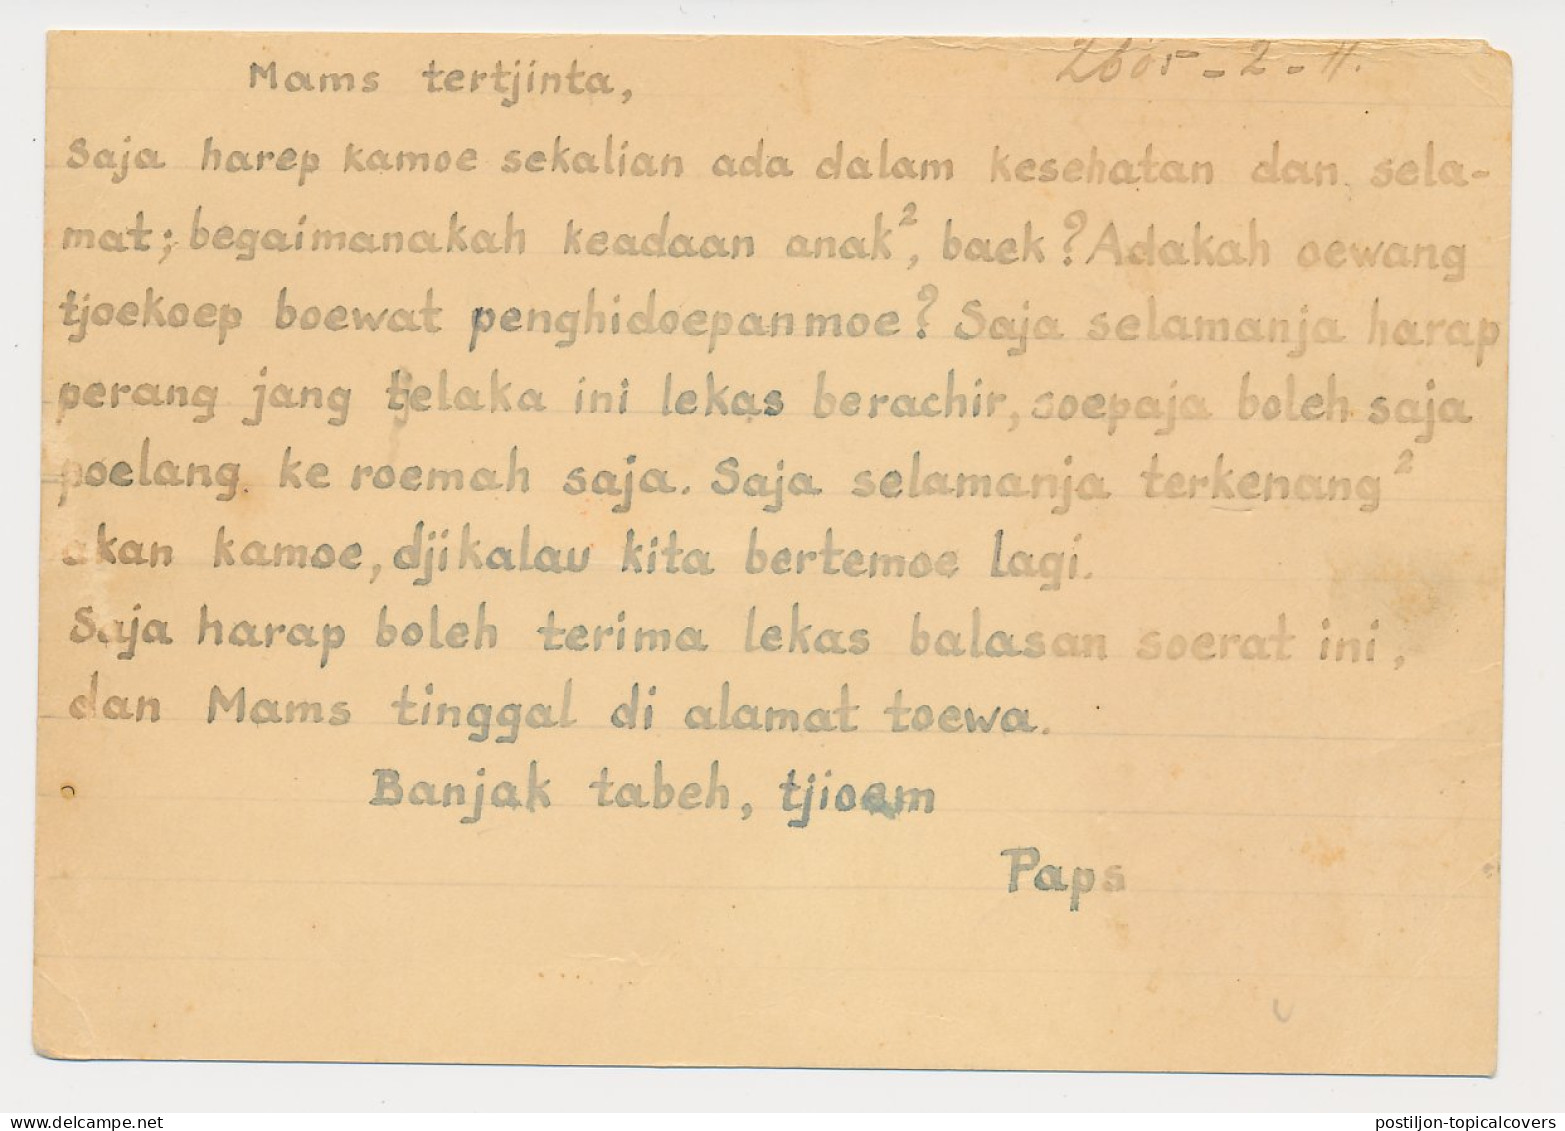 Mams tertjinta,
2605-2-11.
Saja harep kamoe sekalian ada dalam kesehatan dan sela-
mat; begaimanakah keadaan anak², baek? Adakah oewang
tjoekoep boewat penghidoepanmoe? Saja selamanja harap
perang jang tjelaka ini lekas berachir, soepaja boleh saja
poelang ke roemah saja. Saja selamanja terkenang²
akan kamoe, djikalau kita bertemoe lagi.
Saja harap boleh terima lekas balasan soerat ini,
dan Mams tinggal di alamat toewa.
Banjak tabeh, tjioem
Paps
delcampe.net
postiljon-topicalcovers